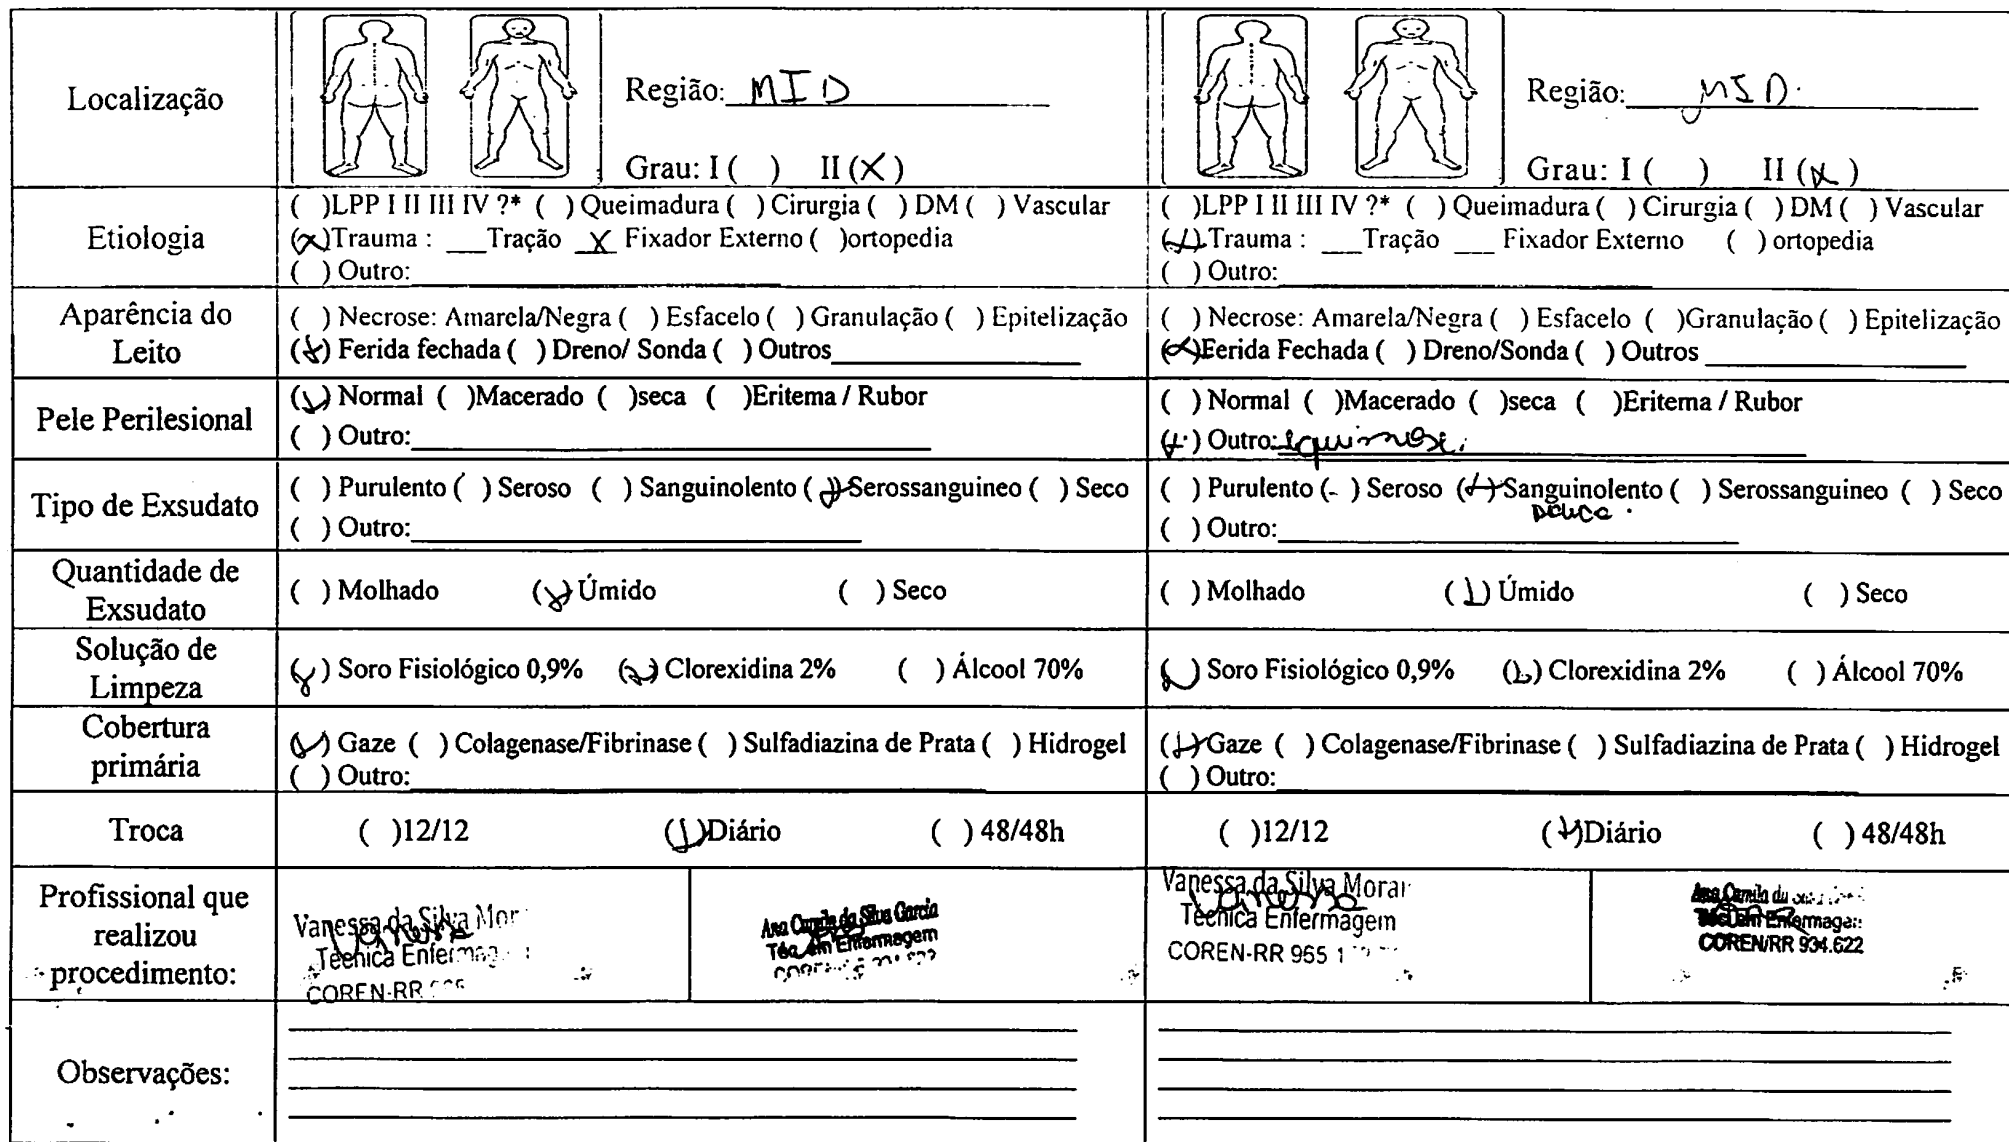 Localização
Região: MID
Grau: I ( ) II (X)
Região: MID.
Grau: I ( ) II (x)
Etiologia
( )LPP I II III IV ?* ( ) Queimadura ( ) Cirurgia ( ) DM ( ) Vascular
(x)Trauma : ___Tração _X_ Fixador Externo ( )ortopedia
( ) Outro:
( )LPP I II III IV ?* ( ) Queimadura ( ) Cirurgia ( ) DM ( ) Vascular
(x)Trauma : ___Tração ___ Fixador Externo ( ) ortopedia
( ) Outro:
Aparência do
Leito
( ) Necrose: Amarela/Negra ( ) Esfacelo ( ) Granulação ( ) Epitelização
(x) Ferida fechada ( ) Dreno/ Sonda ( ) Outros
( ) Necrose: Amarela/Negra ( ) Esfacelo ( )Granulação ( ) Epitelização
(x)Ferida Fechada ( ) Dreno/Sonda ( ) Outros
Pele Perilesional
(x) Normal ( )Macerado ( )seca ( )Eritema / Rubor
( ) Outro:
( ) Normal ( )Macerado ( )seca ( )Eritema / Rubor
(x) Outro: equimose.
Tipo de Exsudato
( ) Purulento ( ) Seroso ( ) Sanguinolento (x) Serossanguineo ( ) Seco
( ) Outro:
( ) Purulento ( ) Seroso (x) Sanguinolento ( ) Serossanguineo ( ) Seco
pouco.
( ) Outro:
Quantidade de
Exsudato
( ) Molhado (x) Úmido ( ) Seco
( ) Molhado (x) Úmido ( ) Seco
Solução de
Limpeza
(x) Soro Fisiológico 0,9% (x) Clorexidina 2% ( ) Álcool 70%
(x) Soro Fisiológico 0,9% (x) Clorexidina 2% ( ) Álcool 70%
Cobertura
primária
(x) Gaze ( ) Colagenase/Fibrinase ( ) Sulfadiazina de Prata ( ) Hidrogel
( ) Outro:
(x) Gaze ( ) Colagenase/Fibrinase ( ) Sulfadiazina de Prata ( ) Hidrogel
( ) Outro:
Troca
( )12/12 (x)Diário ( ) 48/48h
( )12/12 (x)Diário ( ) 48/48h
Profissional que
realizou
procedimento:
Vanessa da Silva Mor
Vanessa
Técnica Enfermag
COREN-RR
Ana Camila da Silva Garcia
Téc. em Enfermagem
Vanessa da Silva Morai
Vanessa
Técnica Enfermagem
COREN-RR 965 1
Ana Camila
Téc. em Enfermagem
COREN/RR 934.622
Observações: